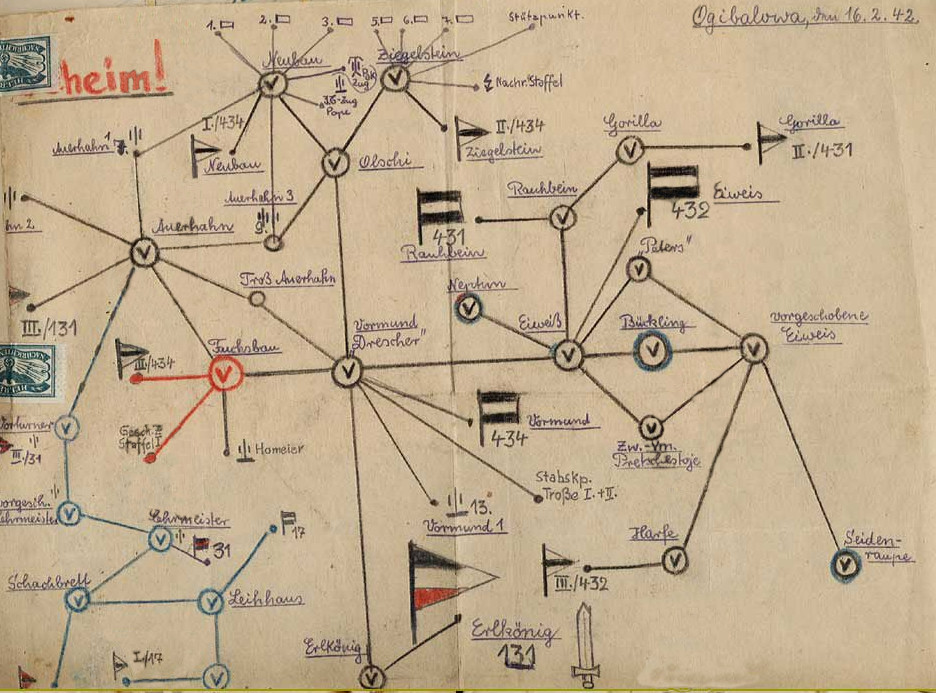 Ogibalowa, den 16.2.42.
heim!
1.
2.
3.
5.
6.
7.
Stützpunkt.
Neubau
Ziegelstein
Pak
Zug
Nachr. Staffel
Pope
I./434
Neubau
II./434
Ziegelstein
Gorilla
Gorilla
II./431
Auerhahn 1
7.
Olschi
Auerhahn 3
9.
Rauhbein
431
Rauhbein
432
Eiweis
hn 2
Auerhahn
Troß Auerhahn
"Peters"
Neptun
III./131
Vormund
"Drescher"
Eiweiß
Bückling
vorgeschobene
Eiweis
III/434
Fuchsbau
434
Vormund
Vorturner
III./31
Staffel I
Homeier
Zw.-Vm.
Pretschestoje
Stabskp.
Troße I.+II.
13.
Vormund 1
vorgesch.
Lehrmeister
Lehrmeister
31
17
Harfe
III./432
Seiden-
raupe
Schachbrett
Leihhaus
Erlkönig
Erlkönig
131
I./17